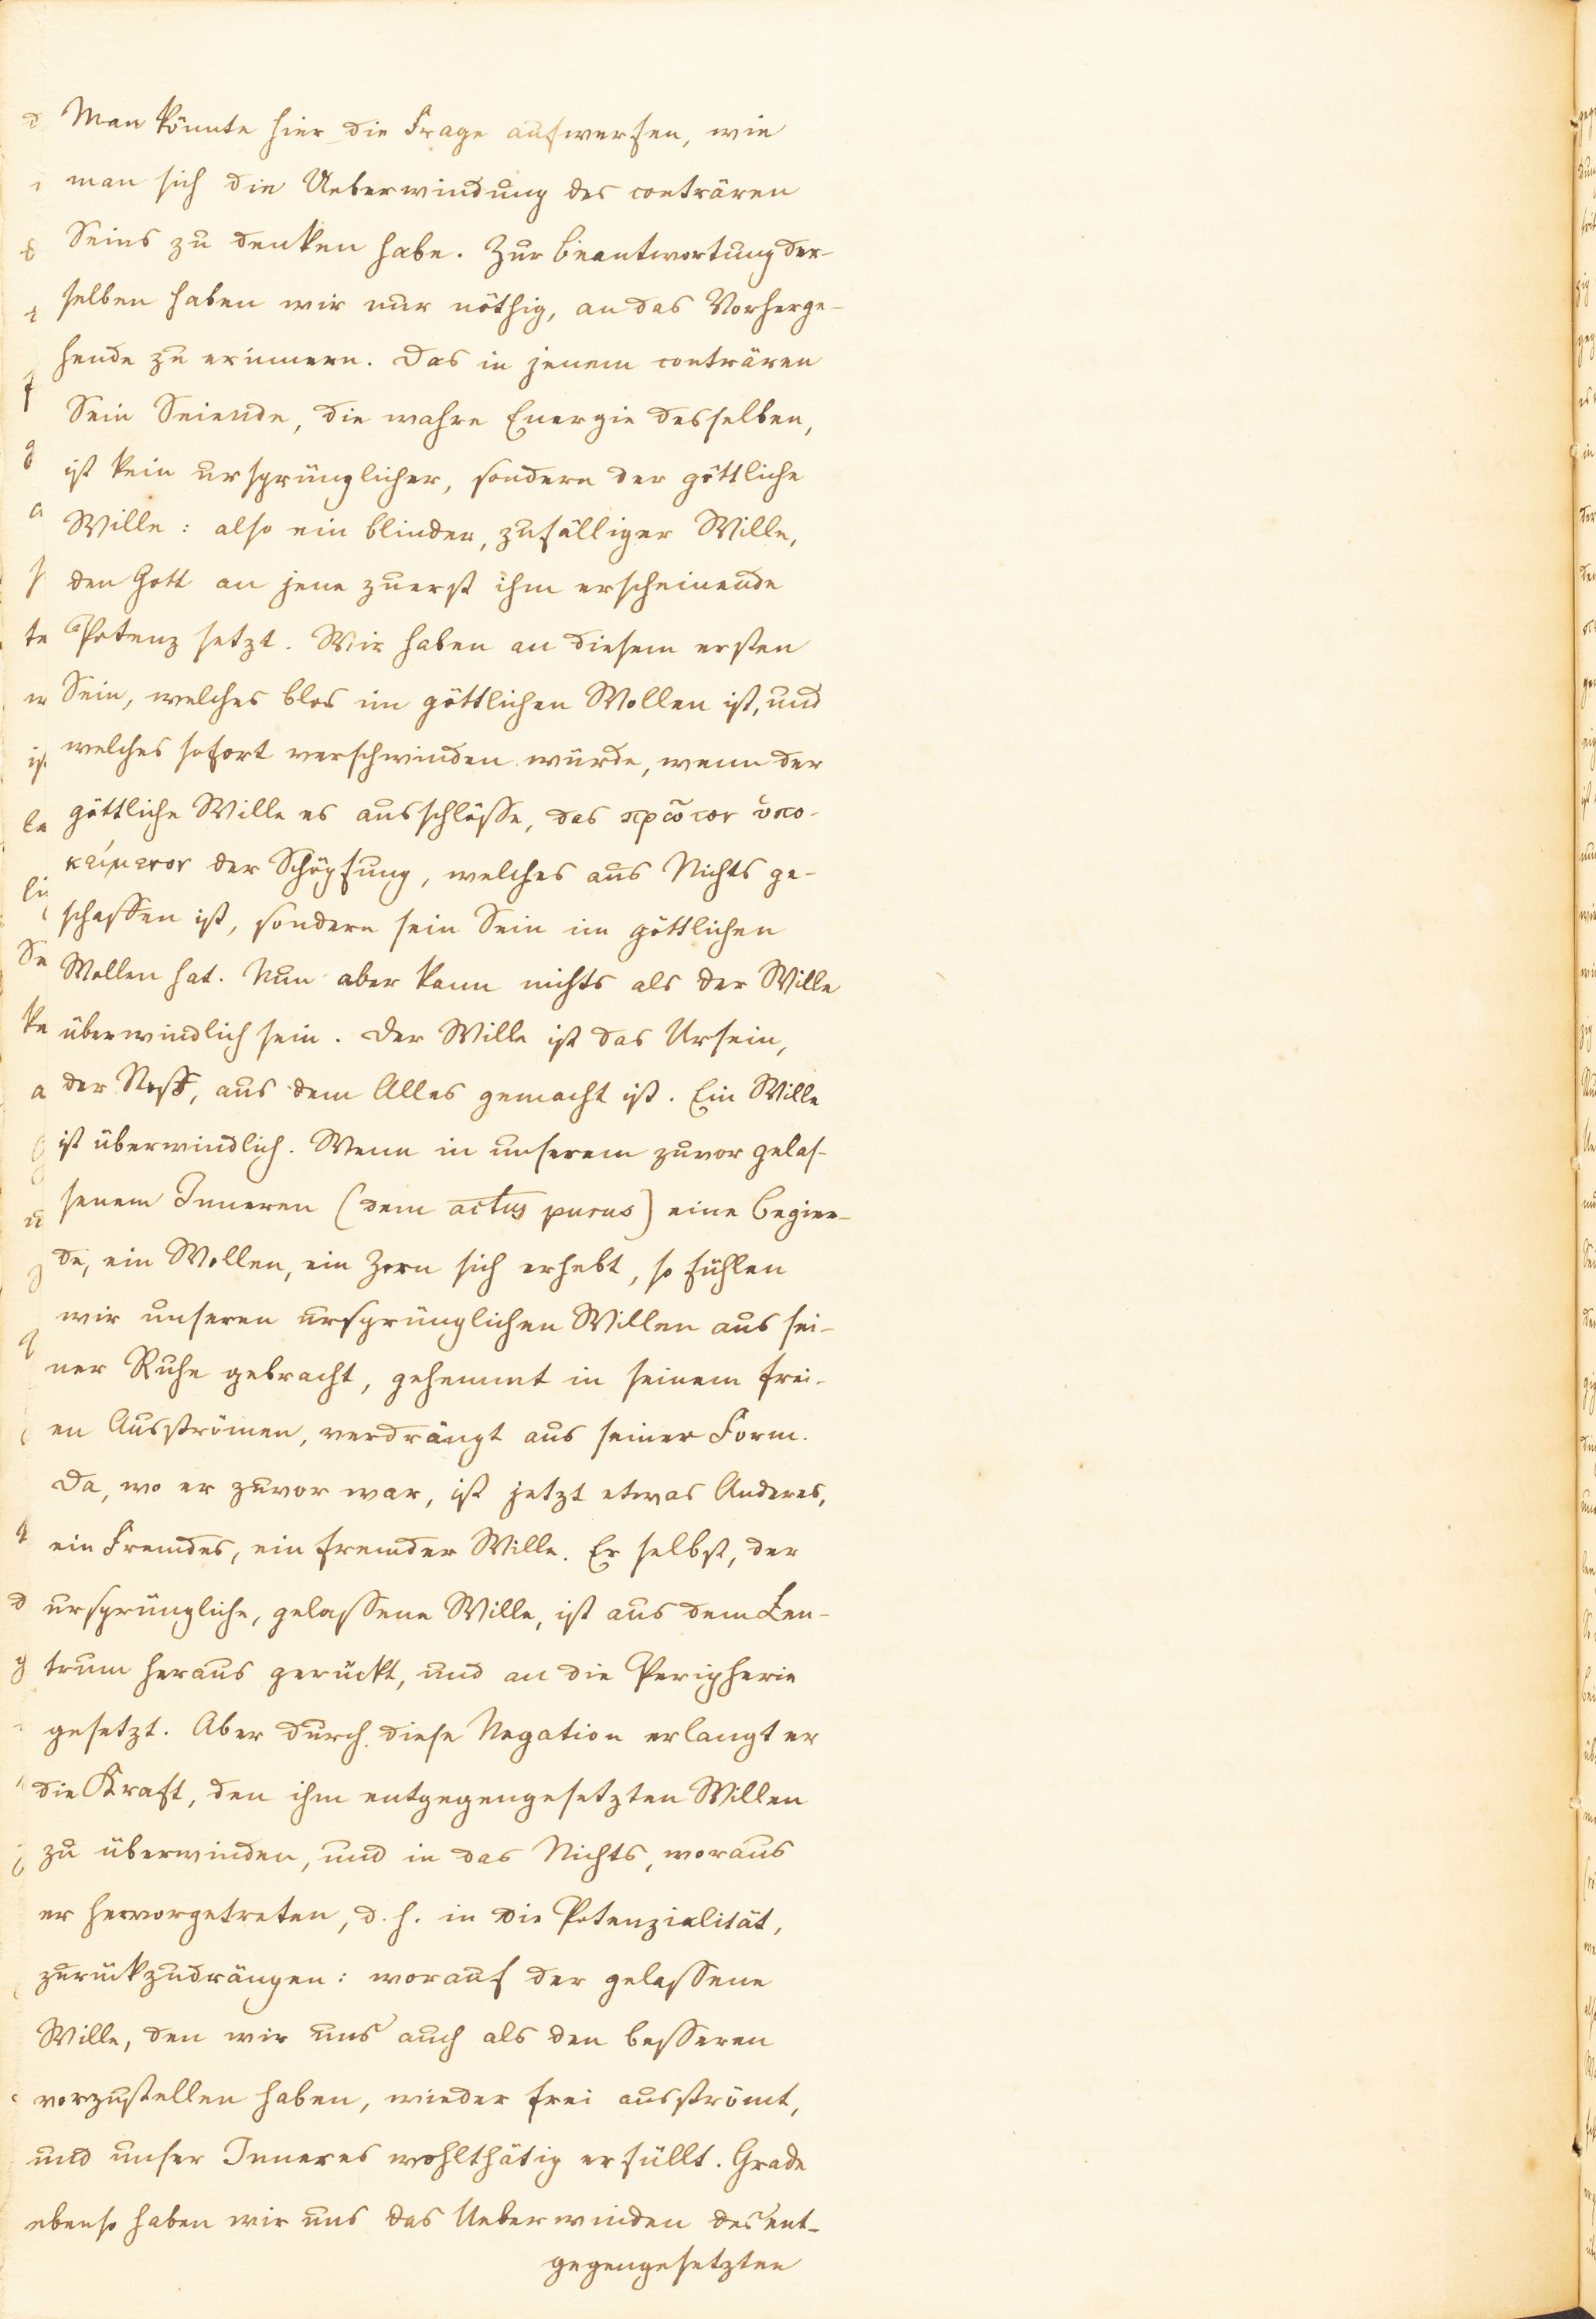 Man könnte hier die Frage aufwerfen, wie
man sich die Ueberwindung des conträren
Seins zu denken habe. Zur Beantwortung der-
selben haben wir nur nöthig, an das Vorherge-
hende zu erinnern. Das in jenem conträren
Sein Seiende, die wahre Energie desselben,
ist kein ursprünglicher, sondern der göttliche
Wille: also ein blinder, zufälliger Wille,
den Gott an jene zuerst ihm erscheinende
Potenz setzt. Wir haben an diesem ersten
Sein, welches blos im göttlichen Wollen ist, und
welches sofort verschwinden würde, wenn der
göttliche Wille es ausschlösse, das πρῶτον ὑπο-
κείμενον der Schöpfung, welches aus Nichts ge-
schaffen ist, sondern sein Sein im göttlichen
Wollen hat. Nun aber kann nichts als der Wille
überwindlich sein. Der Wille ist das Ursein,
der Stoff, aus dem Alles gemacht ist. Ein Wille
ist überwindlich. Wenn in unserem zuvor gelas-
senem Inneren (dem actus purus) eine Begier-
de, ein Wollen, ein Zorn sich erhebt, so fühlen
wir unseren ursprünglichen Willen aus sei-
ner Ruhe gebracht, gehemmt in seinem frei-
en Ausströmen, verdrängt aus seiner Form.
Da, wo er zuvor war, ist jetzt etwas Anderes,
ein Fremdes, ein fremder Wille. Er selbst, der
ursprüngliche, gelassene Wille, ist aus dem Cen-
trum heraus gerückt, und an die Peripherie
gesetzt. Aber durch diese Negation erlangt er
die Kraft, den ihm entgegengesetzten Willen
zu überwinden, und in das Nichts, woraus
er hervorgetreten, d. h. in die Potenzialität,
zurückzudrängen: worauf der gelassene
Wille, den wir uns auch als den besseren
vorzustellen haben, wieder frei ausströmt,
und unser Inneres wohlthätig erfüllt. Grade
ebenso haben wir uns das Ueberwinden des ent-
gegengesetzten